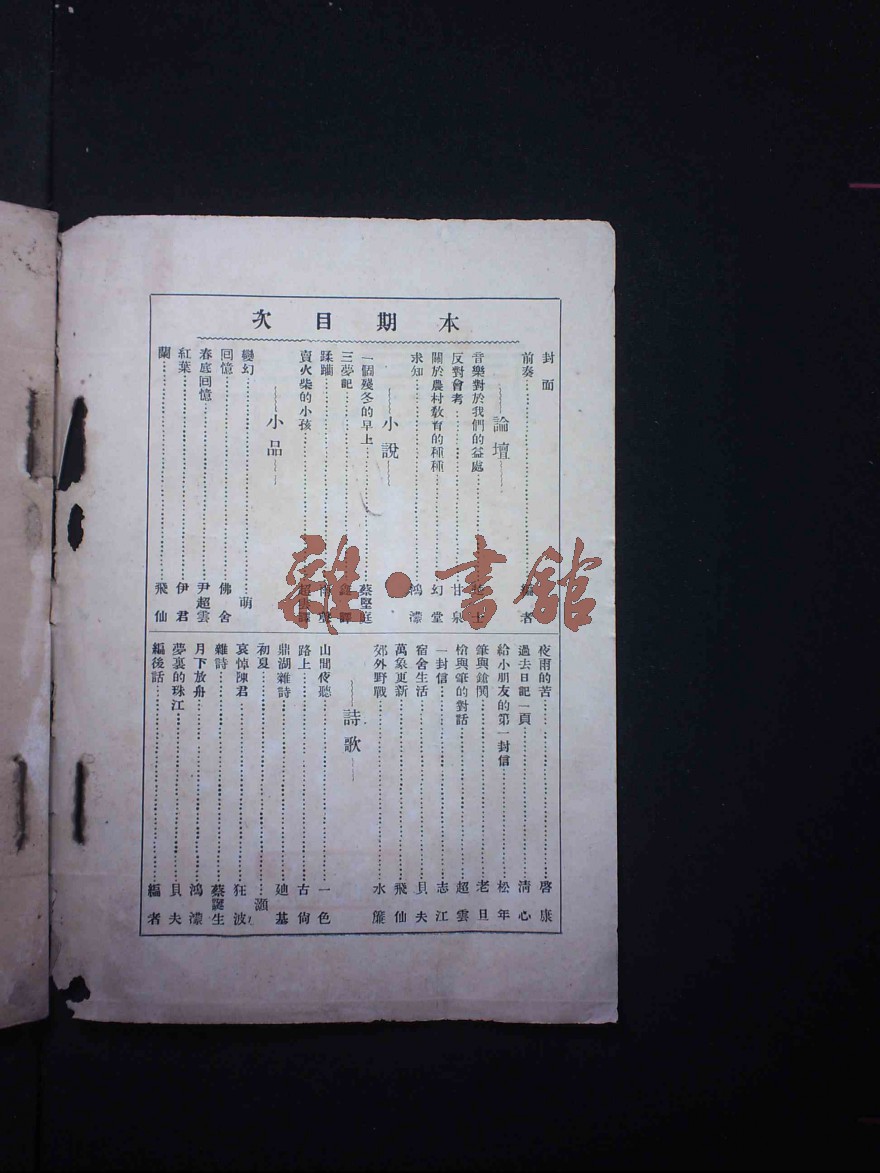 本期目次
封面
前奏 編者
論壇
音樂對於我們的益處 士
反對會考 甘泉
關於農村教育的種種 幻堂
求知 鴻濛
小說
一個殘冬的早上 蔡堅庭
三夢記
蹂躪
賣火柴的小孩
小品
變幻 萌
回憶 佛舍
春庭回憶 尹超雲
紅葉 伊君
蘭 飛仙
夜雨的苦 啓康
過去日記一頁 清心
給小朋友的第一封信 松年
筆與鎗鬨 老旦
槍與筆的對話 超雲
一封信 志江
宿舍生活 貝夫
萬象更新 飛仙
郊外野戰 水簾
詩歌
山間夜聽 一色
路上 古尙
鼎湖雜詩 廸基
初夏 灝
哀悼陳君 狂波
雜詩 蔡誕生
月下放舟 鴻濛
夢裏的珠江 貝夫
編後話 編者
雜·書館